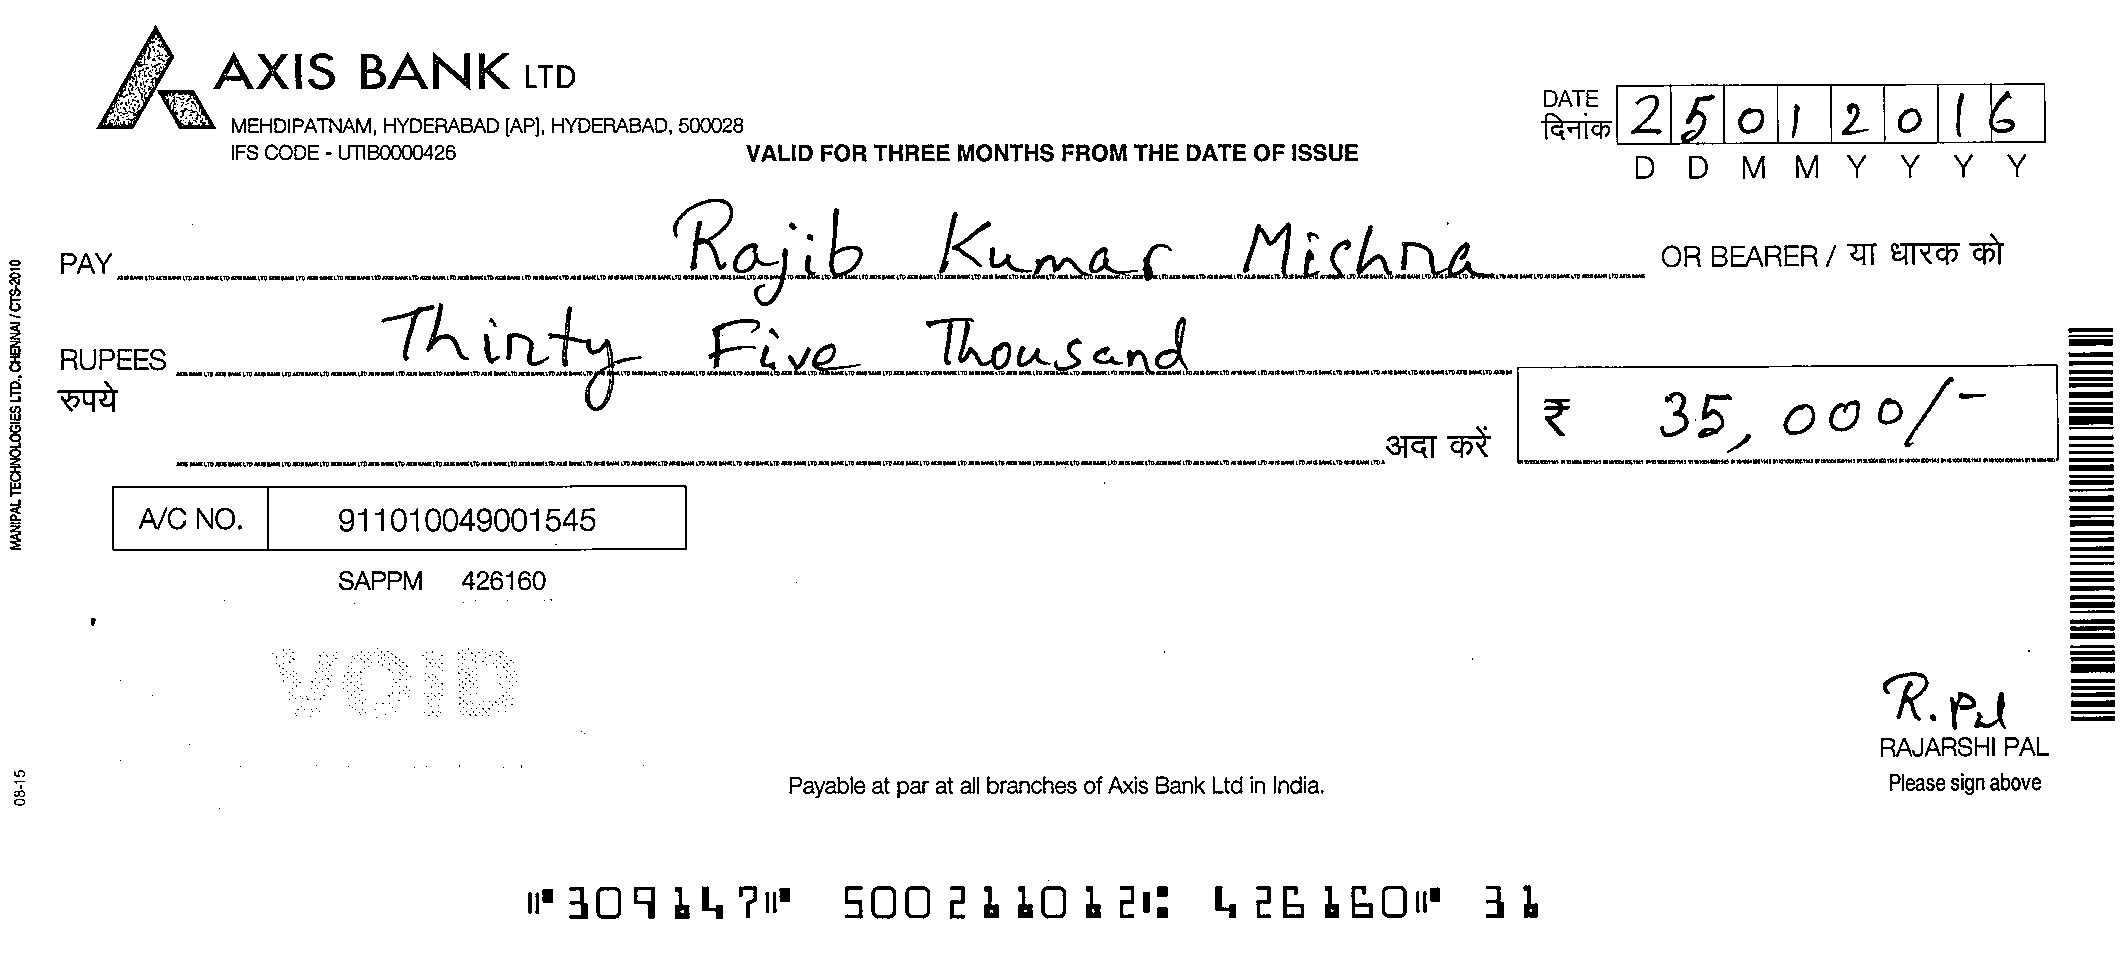 AXIS BANK LTD
MEHDIPATNAM, HYDERABAD [AP], HYDERABAD, 500028
IFS CODE - UTIB0000426
VALID FOR THREE MONTHS FROM THE DATE OF ISSUE
DATE
दिनांक
2 5 0 1 2 0 1 6
D D M M Y Y Y Y
PAY Rajib Kumar Mishra OR BEARER / या धारक को
RUPEES Thirty Five Thousand
रुपये
अदा करें ₹ 35,000/-
A/C NO. 911010049001545
SAPPM 426160
VOID
R. Pal
RAJARSHI PAL
Please sign above
Payable at par at all branches of Axis Bank Ltd in India.
⑈309147⑈ 500211012⑆ 426160⑈ 31
MANIPAL TECHNOLOGIES LTD., CHENNAI / CTS-2010
08-15